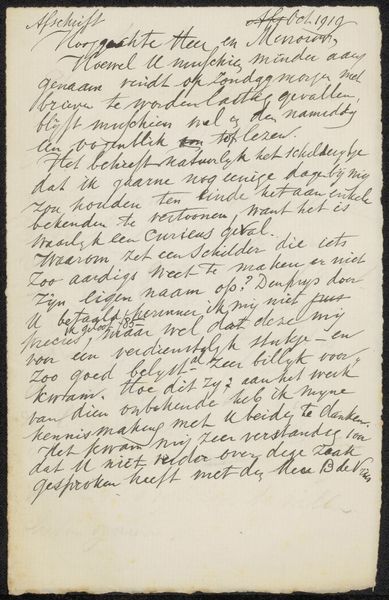 Afschrift Oct. 1919
Hooggeachte Heer en Mevrouw,
Hoewel U misschien minder aan-
genaam vindt op Zondagmorgen met
brieven te worden lastig gevallen,
blijft misschien wel in den namiddag
een oogenblik tot lezen.
Het betreft natuurlijk het schilderytje
dat ik gaarne nog eenige dagen bij mij
zou houden ten einde het aan enkele
bekenden te vertoonen, want het is
waarlijk een curieus geval.
Waarom zet een schilder die iets
zoo aardigs weet te maken er niet
zijn eigen naam op? Den prys door
U betaald, herinner ik mij niet juist
precies, ik geloof 85-, maar wel dat deze mij
voor een verdienstelijk stukje - en
zoo goed belyst - zeer billyk voor-
kwam. Hoe dit zij, aan het werk
van dien onbekende heb ik myne
kennismaking met U beide te danken.
Het kwam mij zeer verstandig voor
dat U niet verder over deze zaak
gesproken heeft met den Heer B de Vries